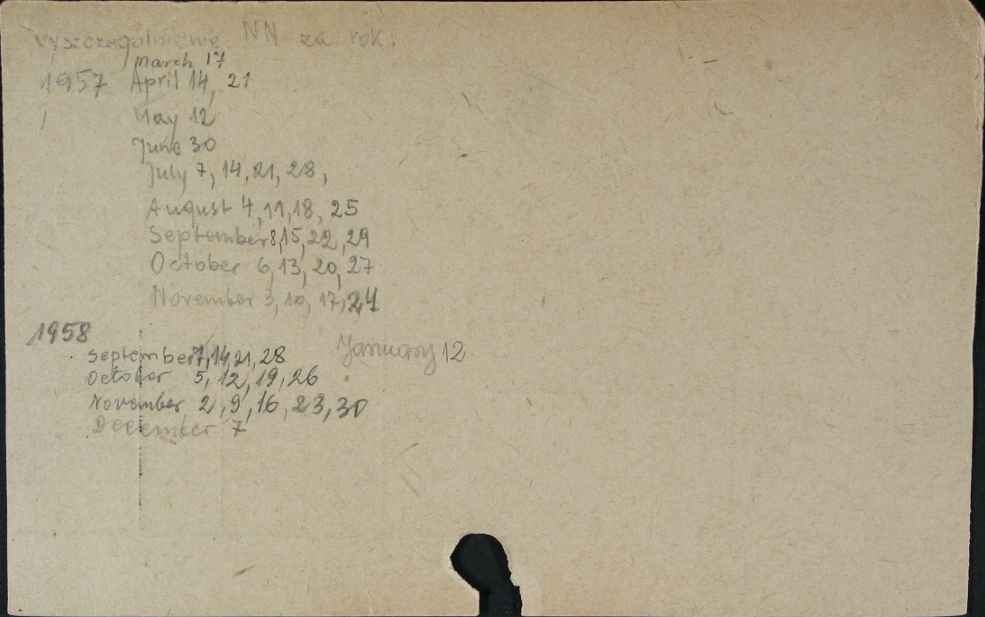 Wyszczególnienie NN za rok:
March 17
1957 April 14, 21
May 12
June 30
July 7, 14, 21, 28,
August 4, 11, 18, 25
September 8, 15, 22, 29
October 6, 13, 20, 27
November 3, 10, 17, 24
1958
September 7, 14, 21, 28 January 12
October 5, 12, 19, 26
November 2, 9, 16, 23, 30
December 7